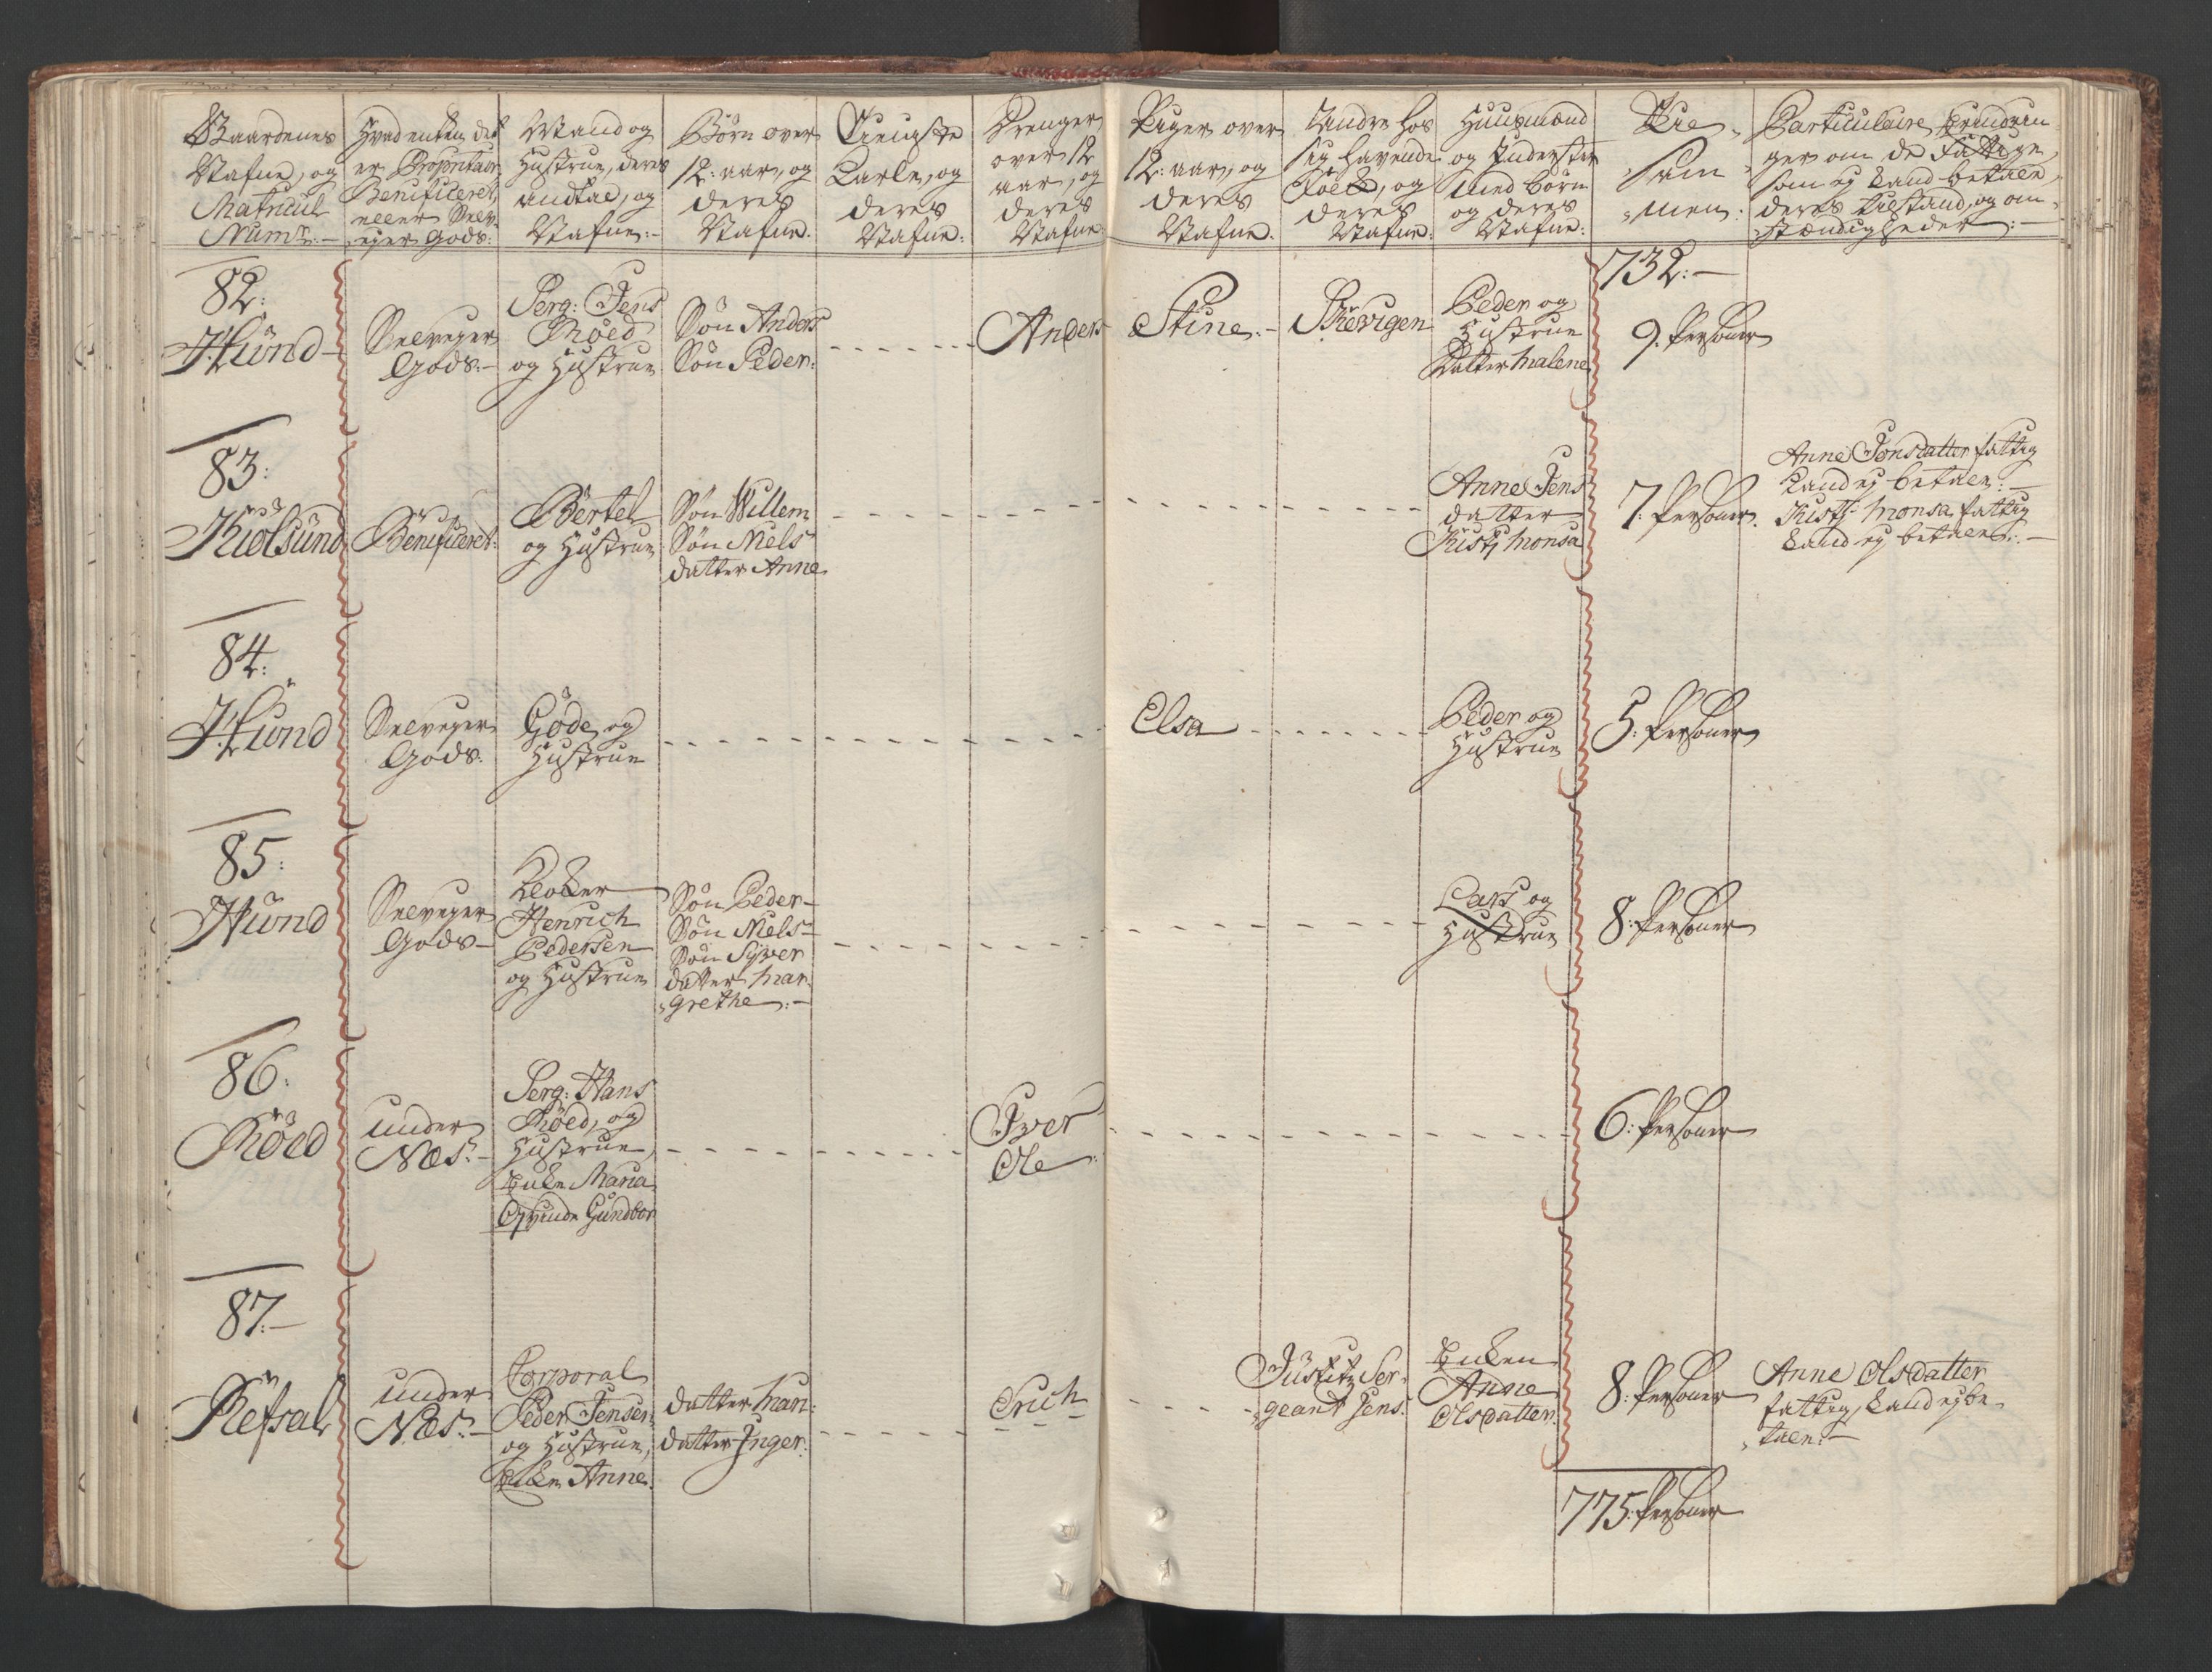 Gaardenes
Nafne, og
Matricul
Numr:
Hvad enten det
er Proprietair
Benificeret,
eller Selv-
ejer Gods:
Mand og
Hustrue, deres
andtal, og
Nafne:
Børn over
12: aar, og
deres
Nafne.
Tieniste
Karle, og
deres
Nafne:
Drenger
over 12
aar, og
deres
Nafne
Piger over
12: aar, og
deres
Nafne.
Andre hos
sig havende
Folk, og
deres
Nafne:
Huusmænd
og Inderster
med børn
og deres
Nafne:
Til-
sam
men:
Particulaire Erindrin-
ger om de Fattige,
som ej kand betale,
deres tilstand, og om-
stændigheder:
732:
82:
Hünd
Selvejer
Gods:
Serg: Jens
Röed
og Hustrue
Søn Anders
Søn Peder:
Anders
Stine:
Peder og
Hustrue
Datter Malene
9: Persohner
83:
Kiölsünd
Benificeret:
Bertel
og Hustrue
Søn Willem
Søn Niels
datter Anne
Anne Jens
datter
Kistj Monsa
7: Persohner.
Anne Jonsdatter fattig
kand ej betale:
Kistj: Monsa fattig
kand ej betale:
84:
Hünd
Selvejer
Gods:
Göde og
Hustrue
Elsa
Peder og
Hustrue
5: Persohner
85:
Hünd
Selvejer
Gods
Kloker
Henrich
Pedersen
og Hustrue
Søn Peder
Søn Niels
Søn Syver
datter Mar-
grethe:
Lars og
Hustrue
8: Persohner
86:
Röed
under
Næs:
Serg: Hans
Röed, og
Hustrue,
Enke Maria
Qvinde Gundbor
Iver
Ole
6: Persohner
87:
Refsal
under
Næs:
Corporal
Peder Jensen
og Hustrue,
Enke Anne.
datter Mari:
datter Inger:
Erich
Justitz Ser-
geant Jens:
Enken
Anne
Olsdatter:
8: Persohner
Anne Olsdatter
fattig, kand ej be-
tale:
775: Persohner